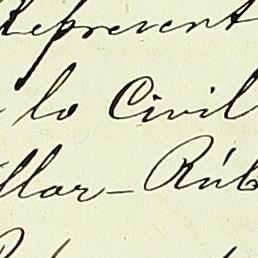 Represent
lo Civil
llar - Rúb